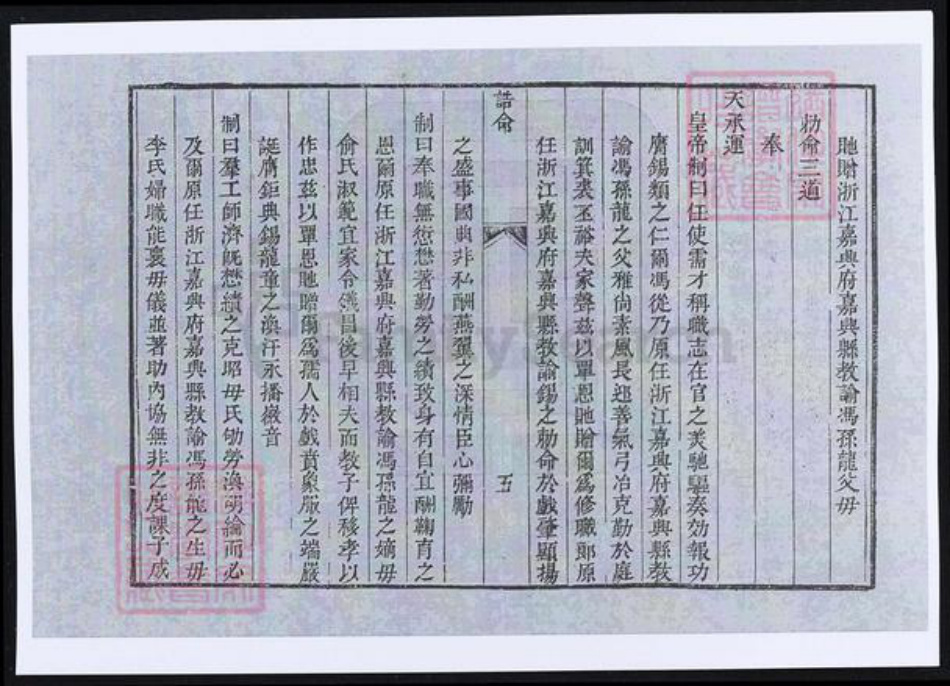 貤贈浙江嘉興府嘉興縣教諭馮孫龍父母
勅命三道
奉
天承運
皇帝制曰任使需才稱職志在官之美馳驅奏効報功
膺錫類之仁爾馮從乃原任浙江嘉興府嘉興縣教
諭馮孫龍之父雅尚素風長迎善氣弓冶克勤於庭
訓箕裘丕裕夫家聲茲以單恩貤贈爾爲修職郎原
任浙江嘉興府嘉興縣教諭錫之勅命於戲肇顯揚
誥命
五
之盛事國典非私酬燕翼之深情臣心彌勵
制曰奉職無愆懋著勤勞之績致身有自宜酬鞠育之
恩爾原任浙江嘉興府嘉興縣教諭馮孫龍之嫡母
俞氏淑範宜家令儀昌後早相夫而教子俾移孝以
作忠茲以單恩貤贈爾爲孺人於戲賁象服之端嚴
誕膺鉅典錫龍章之渙汗永播徽音
制曰羣工師濟旣懋績之克昭母氏劬勞渙明綸而必
及爾原任浙江嘉興府嘉興縣教諭馮孫龍之生母
李氏婦職能襄母儀並著助內協無非之度課子成